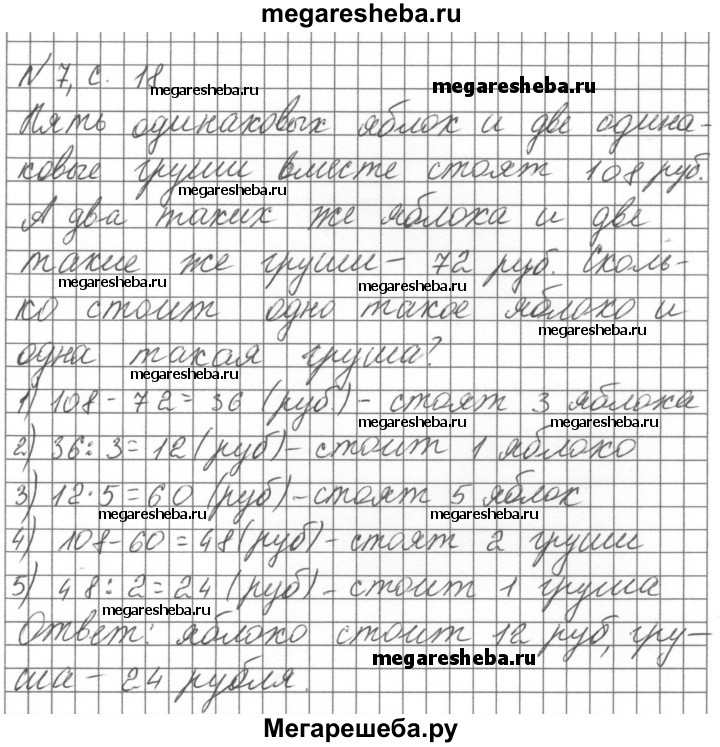 megaresheba.ru
№ 7, с. 18
megaresheba.ru
megaresheba.ru
Пять одинаковых яблок и две одина-
ковые груши вместе стоят 108 руб.
megaresheba.ru
А два таких же яблока и две
такие же груши – 72 руб. Сколь-
megaresheba.ru
megaresheba.ru
ко стоит одно такое яблоко и
megaresheba.ru
одна такая груша?
megaresheba.ru
1) 108 - 72 = 36 (руб.) - стоят 3 яблока
megaresheba.ru
megaresheba.ru
2) 36 : 3 = 12 (руб) - стоит 1 яблоко
3) 12 · 5 = 60 (руб) - стоят 5 яблок
megaresheba.ru
megaresheba.ru
4) 108 - 60 = 48 (руб) - стоят 2 груши
5) 48 : 2 = 24 (руб) - стоит 1 груша
megaresheba.ru
Ответ: яблоко стоит 12 руб, гру-
megaresheba.ru
ша - 24 рубля.
Мегарешеба.ру